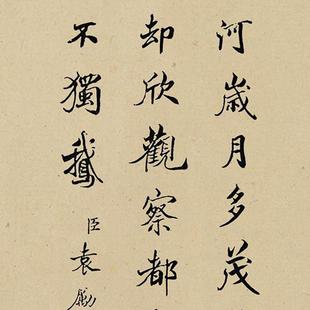 河歲月多茂
却欣觀察都
不獨鵝
臣袁勵